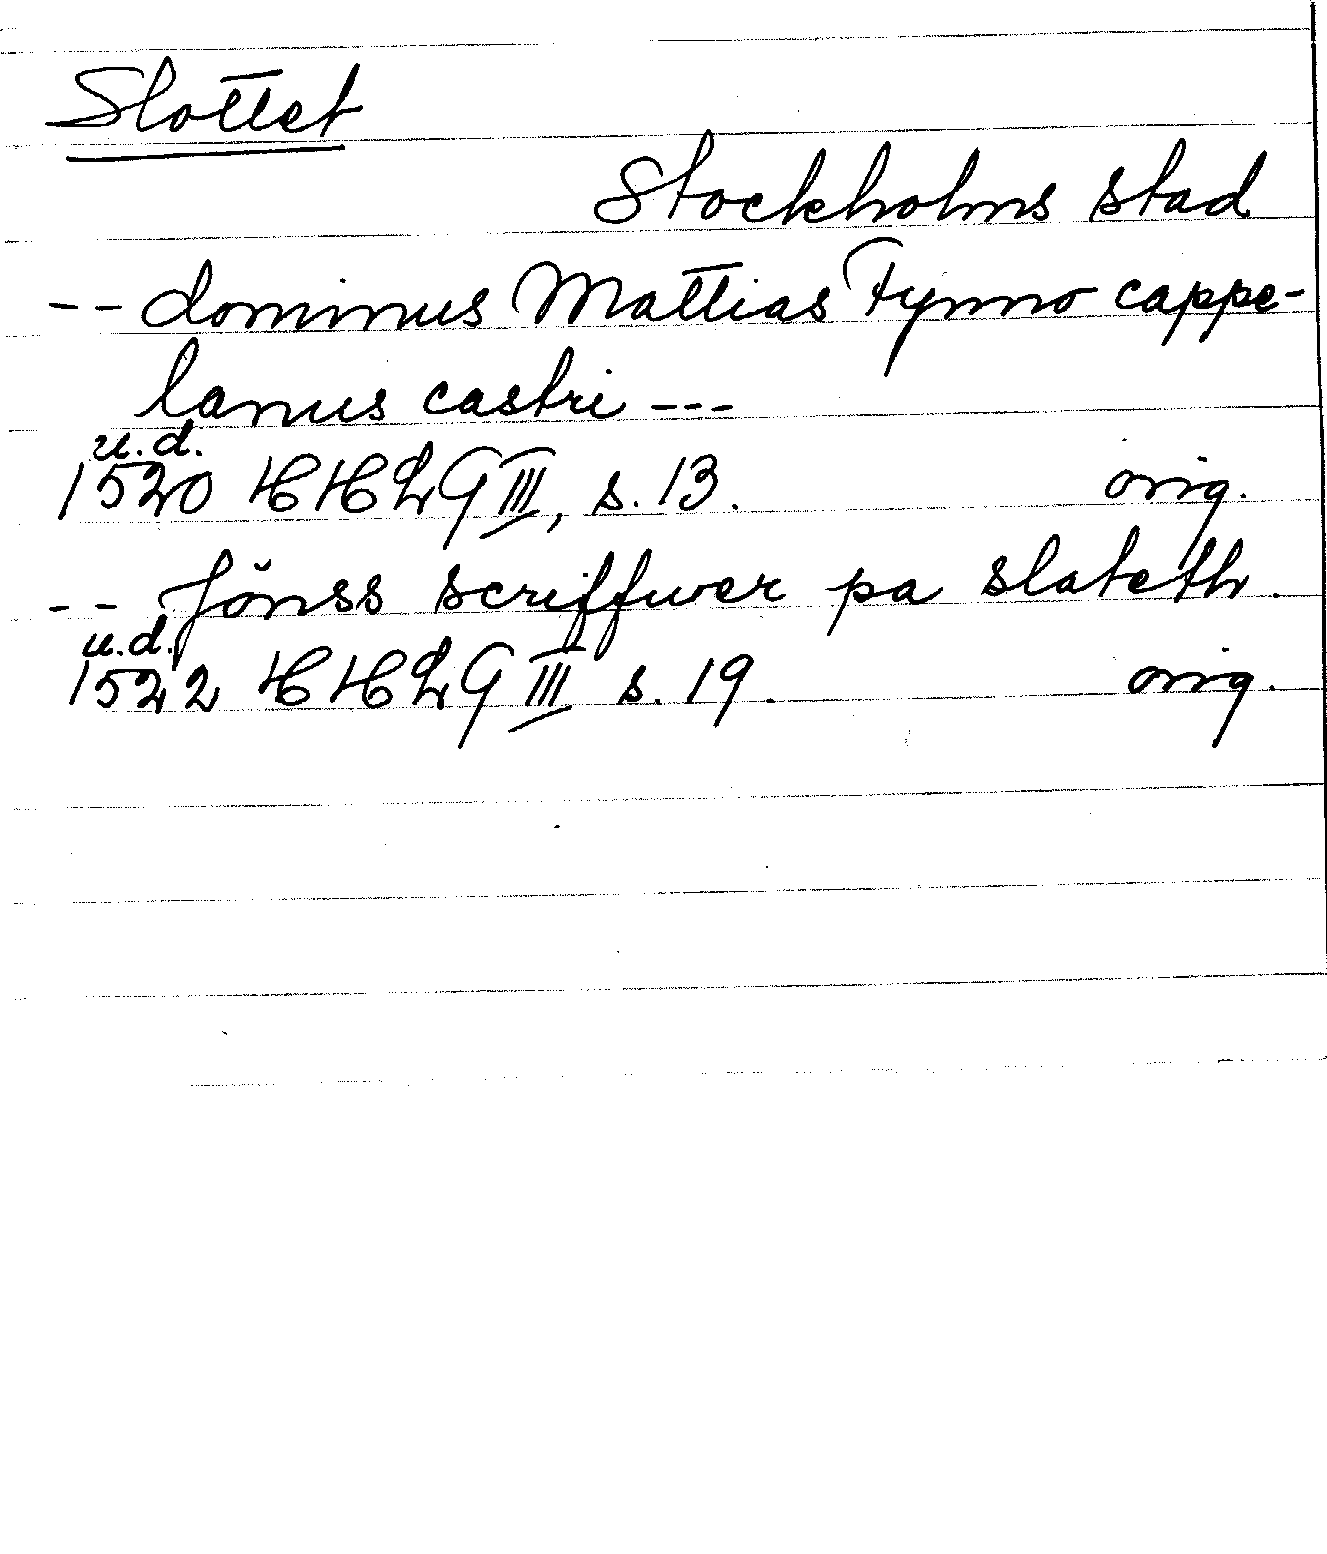 Slottet
Stockholms stad
-- dominus Mattias Fynno cappe-
lanus castri ---
u.d.
1520 HHLG III, s. 13. orig.
-- Jönss scriffwer pa slateth.
u.d.
1522 HHLG III s. 19. orig.